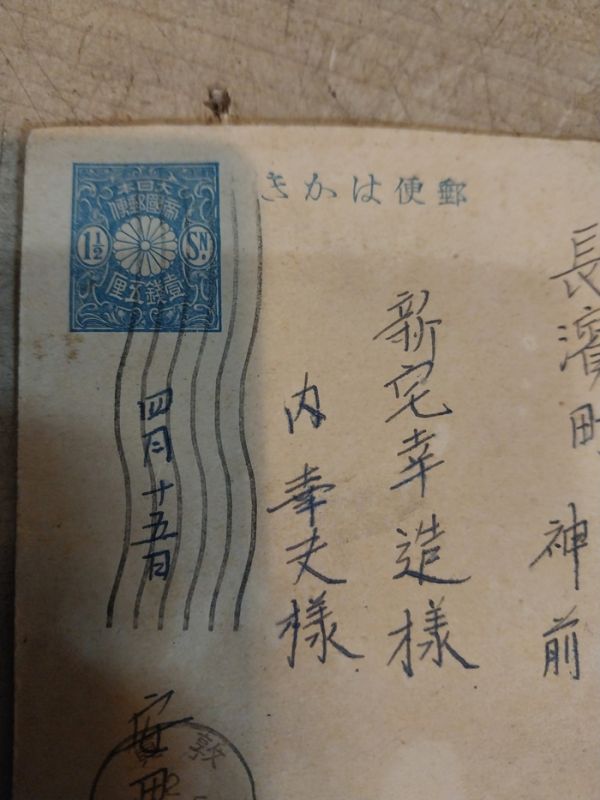 郵便はかき
大日本
帝國郵便
1½ SN.
壹錢五厘
長濱町 神前
新宅幸造様
内 幸夫様
四月十五日
敦